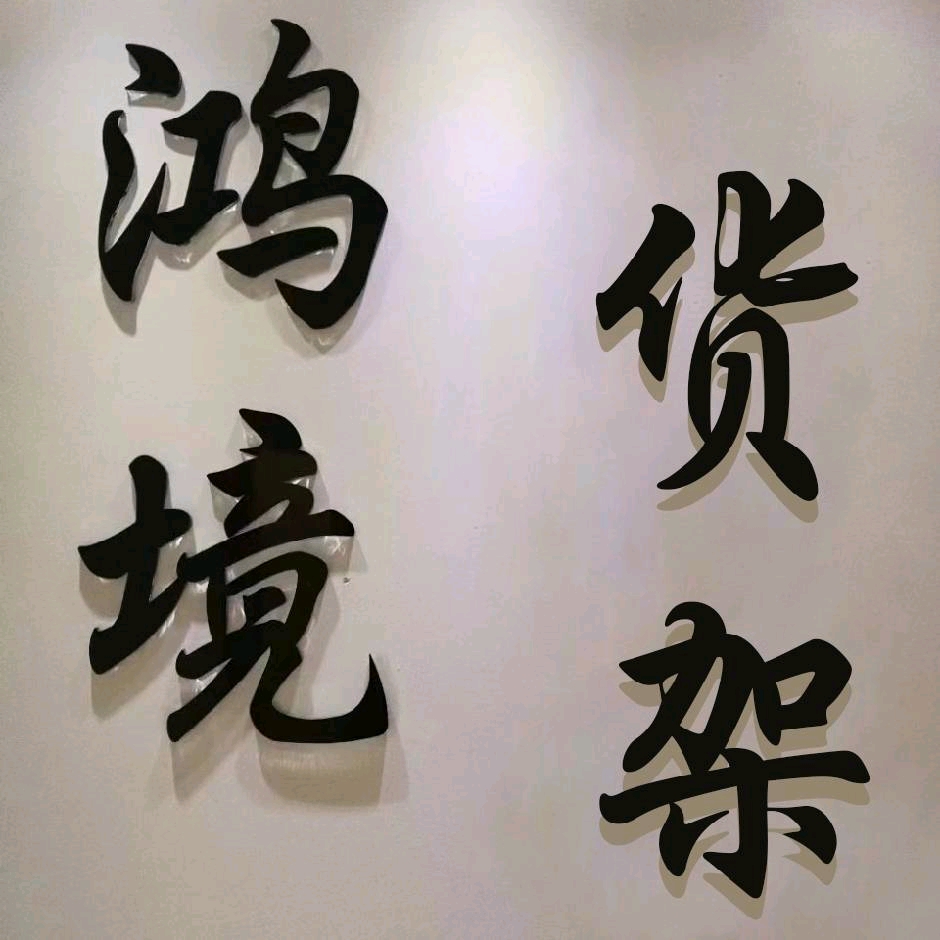 鸿境
货架